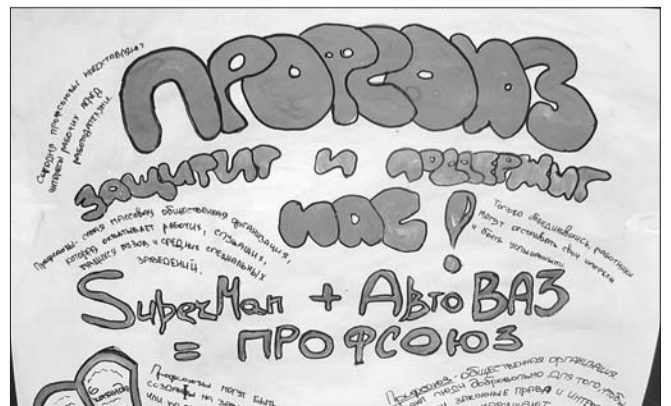 Сегодня профсоюзы представляют
интересы рабочих перед
работодателями.
ПРОФСОЮЗ
ЗАЩИТИТ И ПОДДЕРЖИТ
НАС!
Профсоюзы - самая массовая общественная организация,
которая охватывает рабочих, служащих,
учащихся вузов и средних специальных
заведений.
Только объединившись, работники
могут отстаивать свои интересы
и быть услышанными
SuperMan + АвтоВАЗ
= ПРОФСОЮЗ
команда
Профсоюзы могут быть
созданы на
или
Профсоюз - общественная организация
люди добровольно для того, чтобы
законные права и